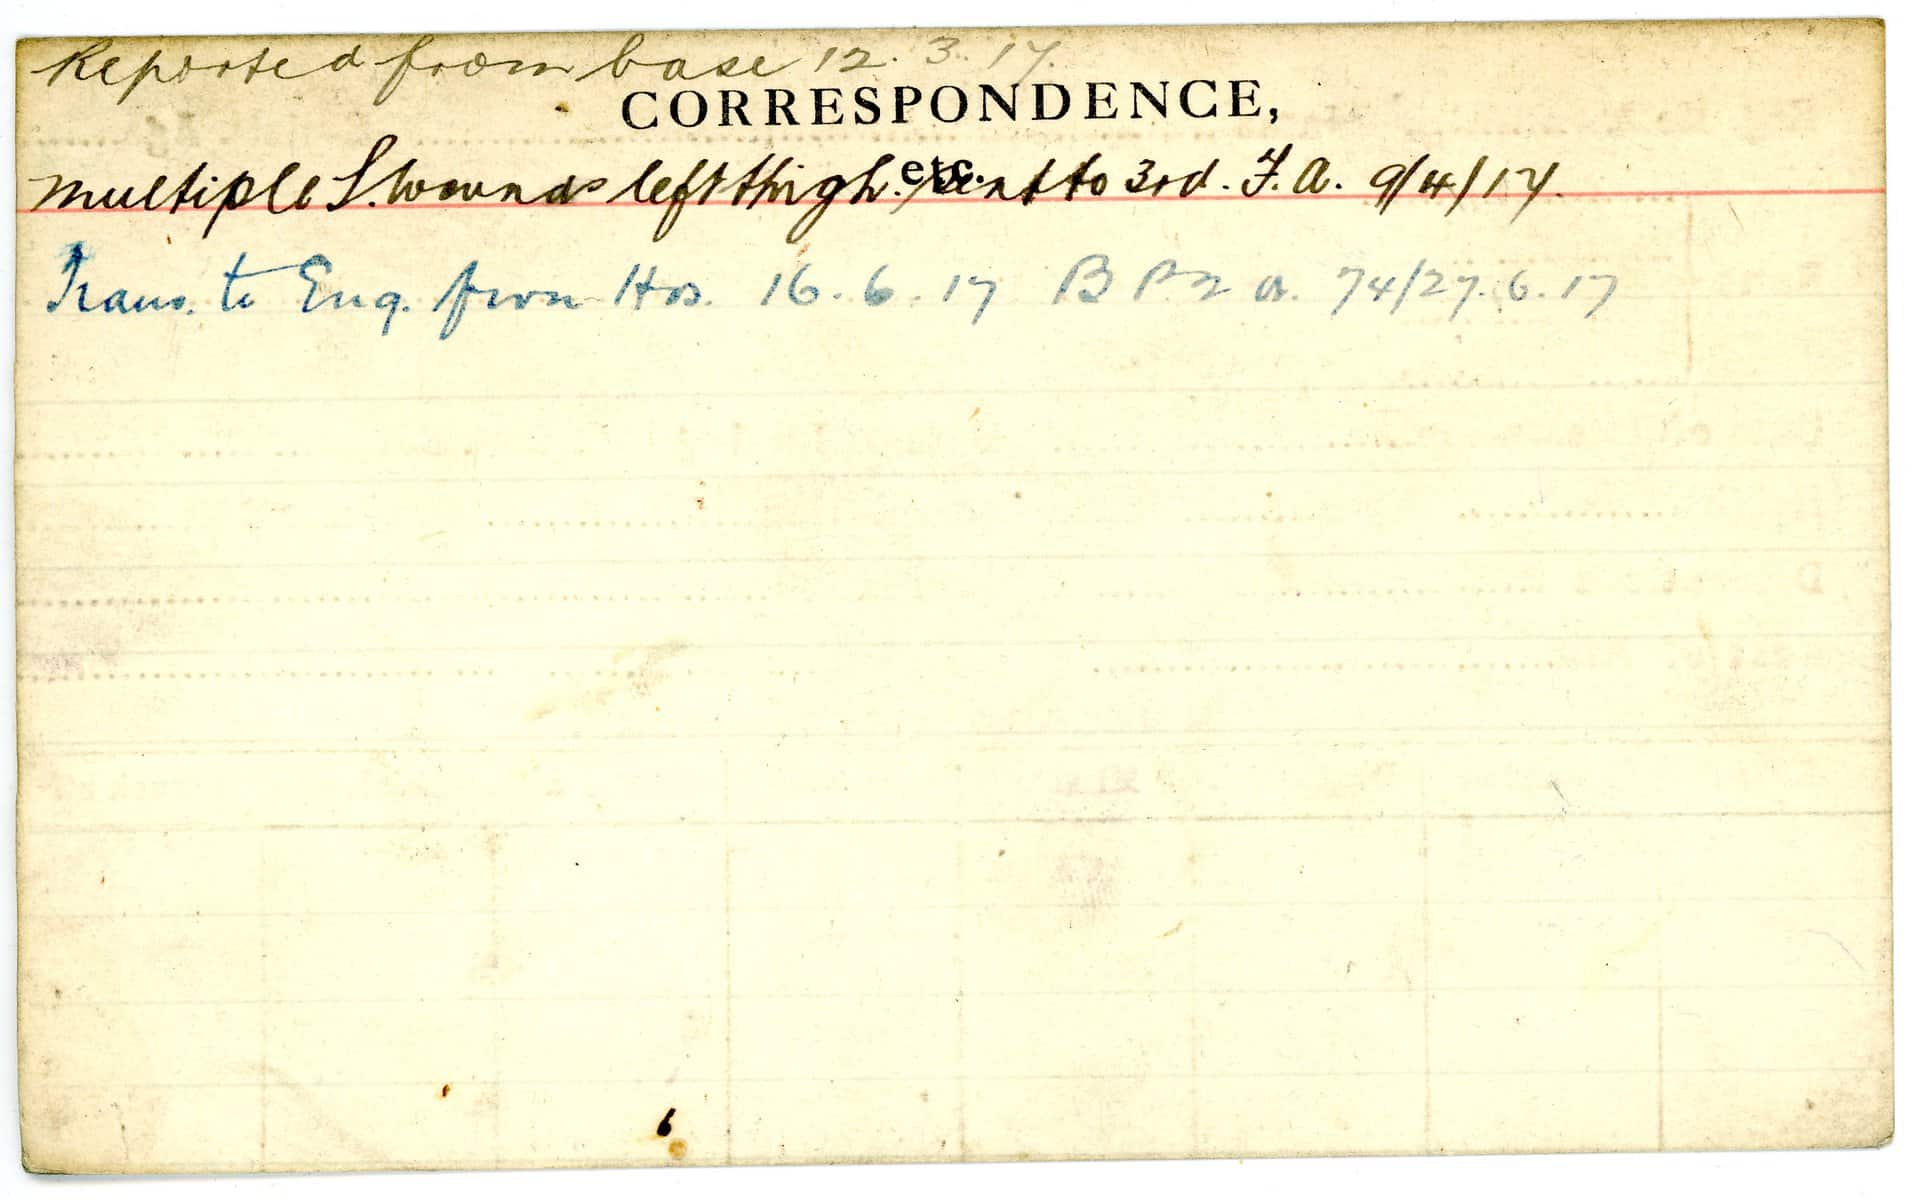 Reported from base 12.3.17.
CORRESPONDENCE,
etc.
Multiple S. Wounds left thigh. Sent to 3rd. F.A. 9/4/17.
Trans. to Eng. from Hos. 16.6.17 B P.2 74/27.6.17